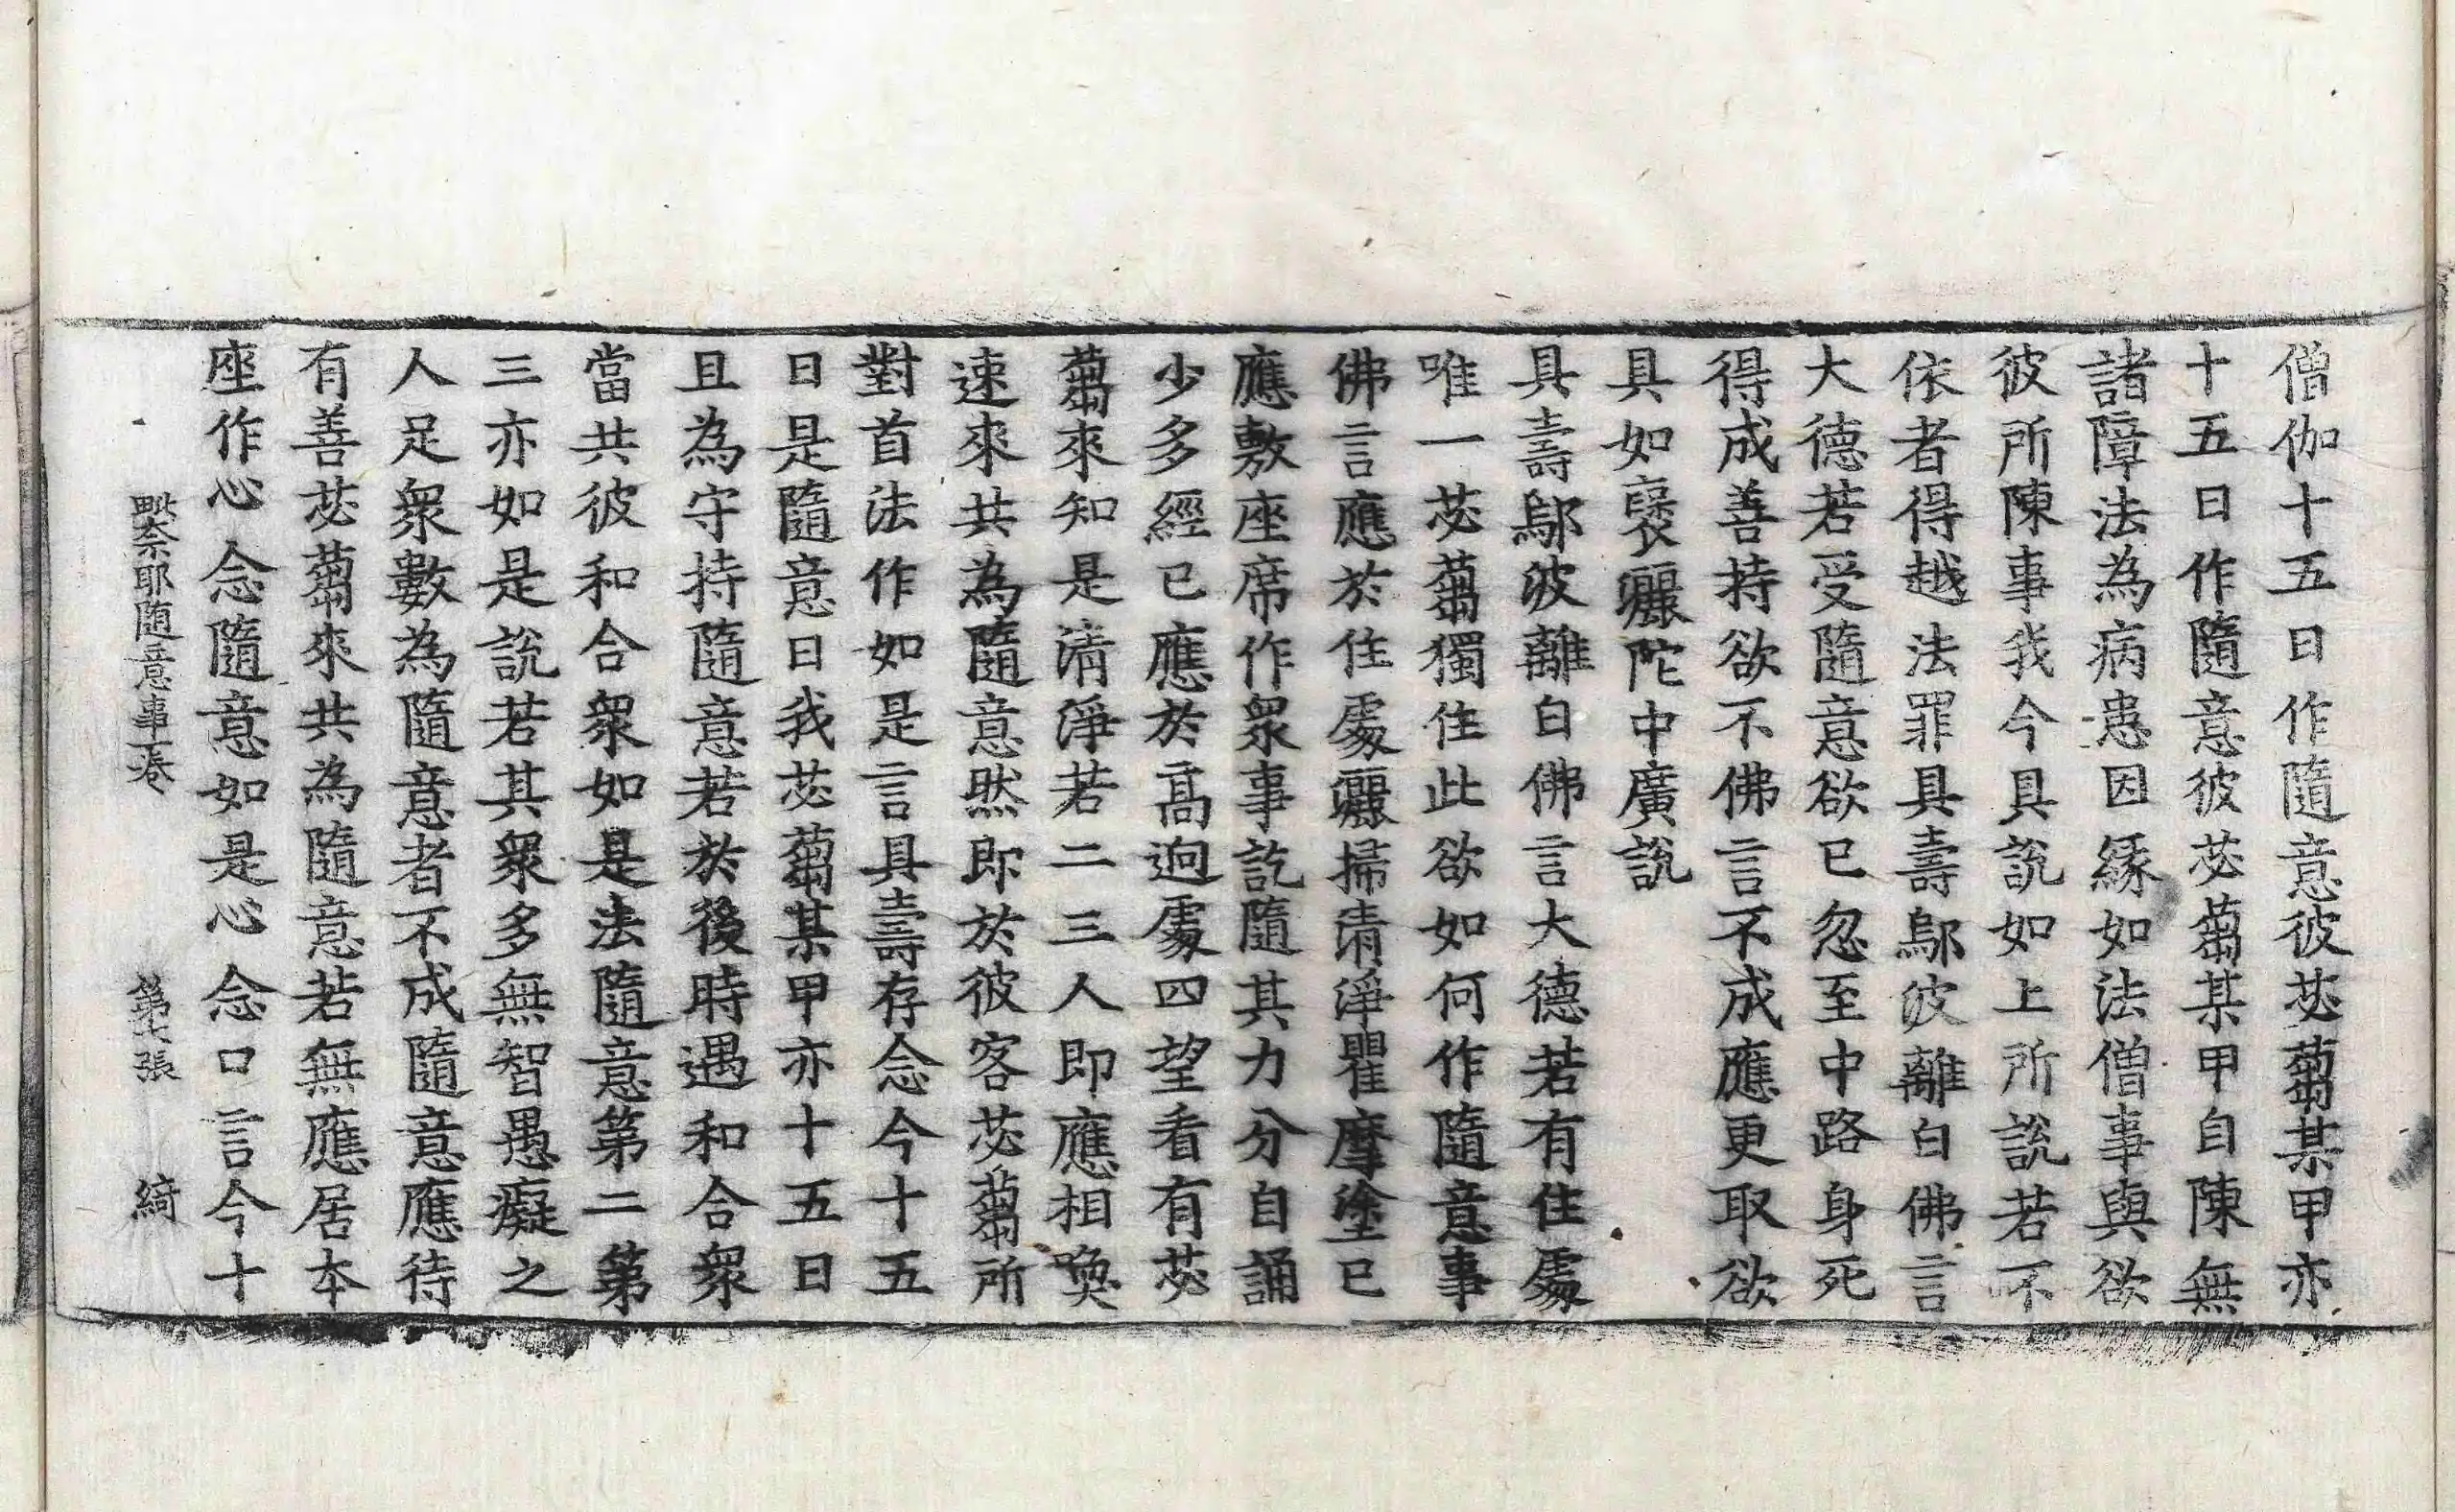 僧伽十五日作隨意彼苾蒭某甲亦
十五日作隨意彼苾蒭某甲自陳無
諸障法為病患因緣如法僧事與欲
彼所陳事我今具說如上所說若不
依者得越法罪具壽鄔波離白佛言
大德若受隨意欲已忽至中路身死
得成善持欲不佛言不成應更取欲
具如褒灑陀中廣說
具壽鄔波離白佛言大德若有住處
唯一苾蒭獨住此欲如何作隨意事
佛言應於住處灑掃清淨瞿摩塗已
應敷座席作衆事訖隨其力分自誦
少多經已應於高逈處四望看有苾
蒭來知是清淨若二三人即應相喚
速來共為隨意然即於彼客苾蒭所
對首法作如是言具壽存念今十五
日是隨意日我苾蒭某甲亦十五日
且為守持隨意若於後時遇和合衆
當共彼和合衆如是法隨意第二第
三亦如是說若其衆多無智愚癡之
人足衆數為隨意者不成隨意應待
有善苾蒭來共為隨意若無應居本
座作心念隨意如是心念口言今十
毗奈耶随意事一卷 第七張 綺